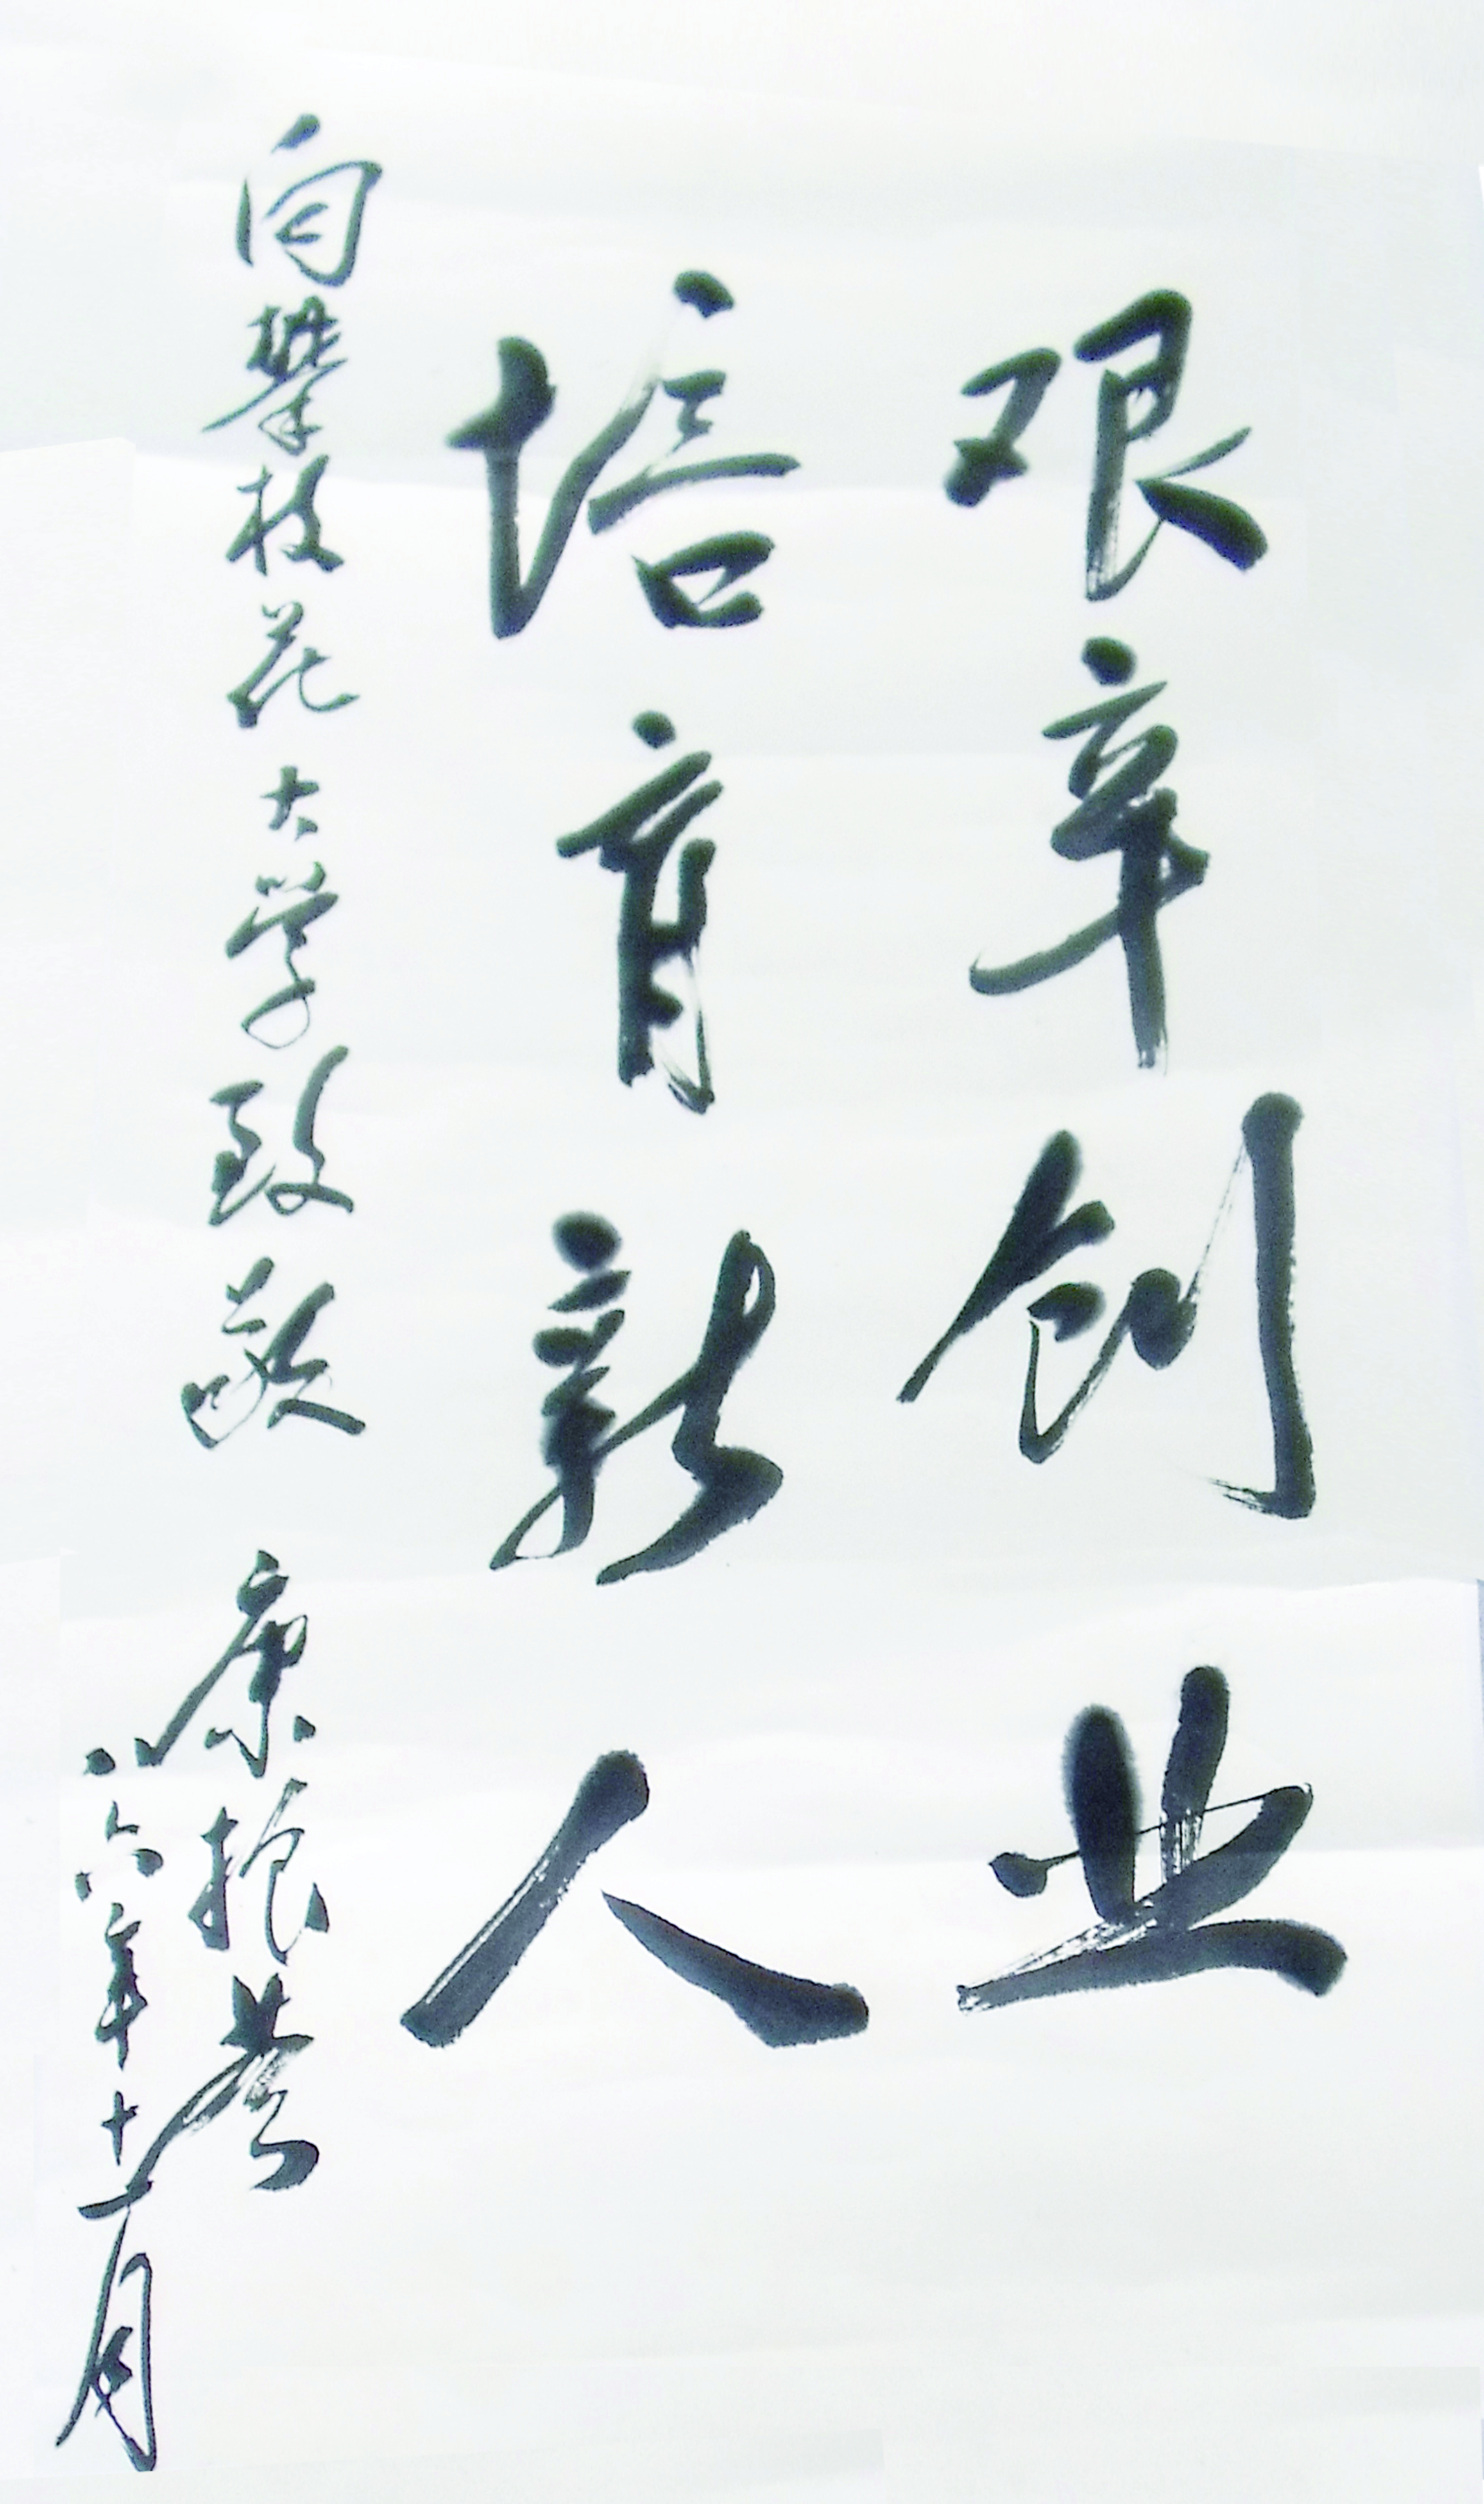 艰辛创业
培育新人
向攀枝花大学致敬
康振黄
八六年十一月